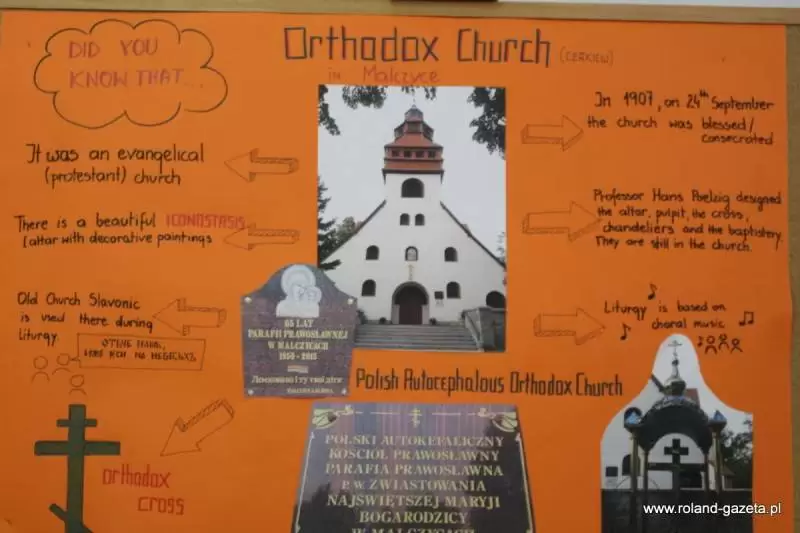 DID YOU
KNOW THAT...
Orthodox Church (CERKIEW)
in Malczyce
In 1907, on 24th September
the church was blessed/
consecrated
It was an evangelical
(protestant) church
Professor Hans Poelzig designed
the altar, pulpit, the cross,
chandeliers and the baptistery.
They are still in the church.
There is a beautiful ICONOSTASIS
(altar with decorative paintings
Old Church Slavonic
is used there during
liturgy.
Liturgy is based on
choral music
65 LAT
PARAFII PRAWOSŁAWNEJ
W MALCZYCACH
1950 - 2015
Polish Autocephalous Orthodox Church
orthodox
cross
POLSKI AUTOKEFALICZNY
KOŚCIÓŁ PRAWOSŁAWNY
PARAFIA PRAWOSŁAWNA
P.W. ZWIASTOWANIA
NAJŚWIĘTSZEJ MARYJI
BOGARODZICY
W MALCZYCACH
www.roland-gazeta.pl